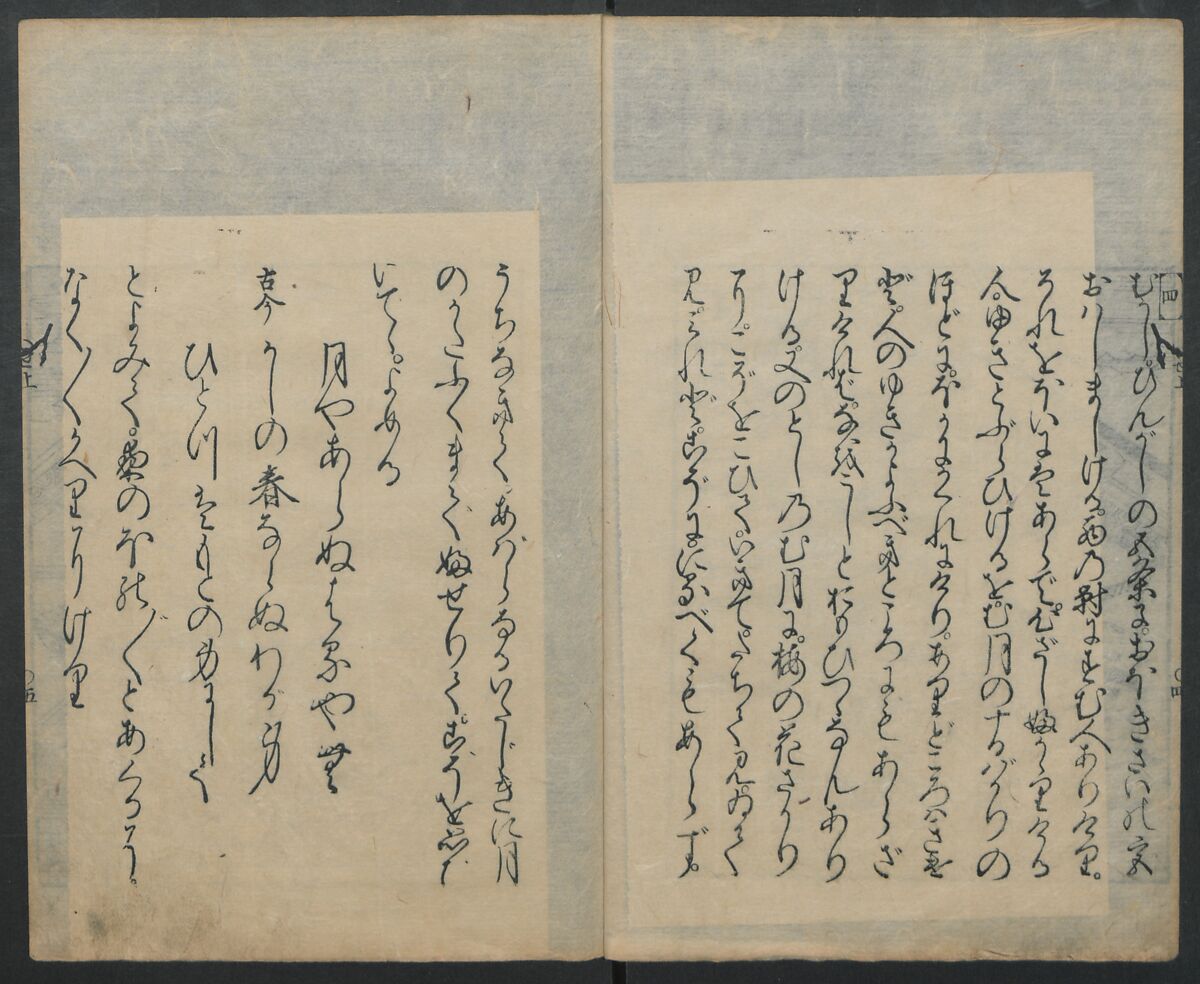 四
むかし。ひんがしの五条に。おほきさいの宮
おはしましける。西の対にすむ人ありけり。
それをほいにはあらで。心ざしふかゝりける
人。ゆきとぶらひけるを。む月の十日ばかりの
ほどに。ほかにかくれにけり。ありどころはきけ
ど。人のゆきかよふべきところにもあらざ
りければ。なをうしとおもひつゝなんあり
ける。又のとしのむ月に。梅の花さかり
に。こぞをこひていきて。たちてみ。ゐて
み。みれど。こぞに。にるべくもあらず。
うちなきて。あばらなるいたじきに。月
のかたふくまでふせりて。こぞを思ひ
いでゝ。よめる
月やあらぬはるや昔
古今
かしの春ならぬわが身
ひとつはもとの身にして
とよみて。夜のほの〴〵とあくるに。
なく〳〵かへりにけり
上
〇四
上
〇五